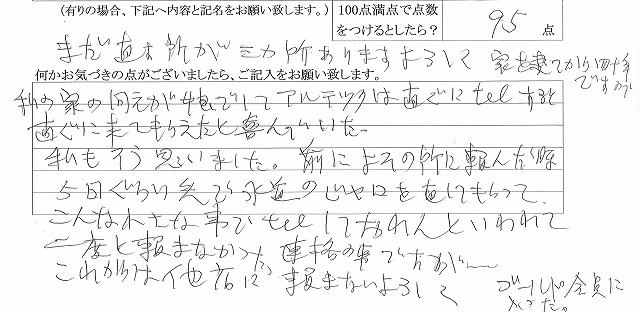 (有りの場合、下記へ内容と記名をお願い致します。)
100点満点で点数をつけるとしたら？
95 点
まだ直す所が三カ所ありますよろしく
家を建てから四年ですが
何かお気づきの点がございましたら、ご記入をお願い致します。
私の家の向えが娘でしてアルテックは直ぐにtelすると
直ぐに来てもらえたと喜んでいた。
私もそう思いました。前によその所に頼んだ際
5日ぐらい先で水道のじゃ口を直してもらって
こんな小さな事でtelしてなれんといわれて
二度と頼まなかった 連格の事ですが
これからは他店に 頼まないよろしく
全員に